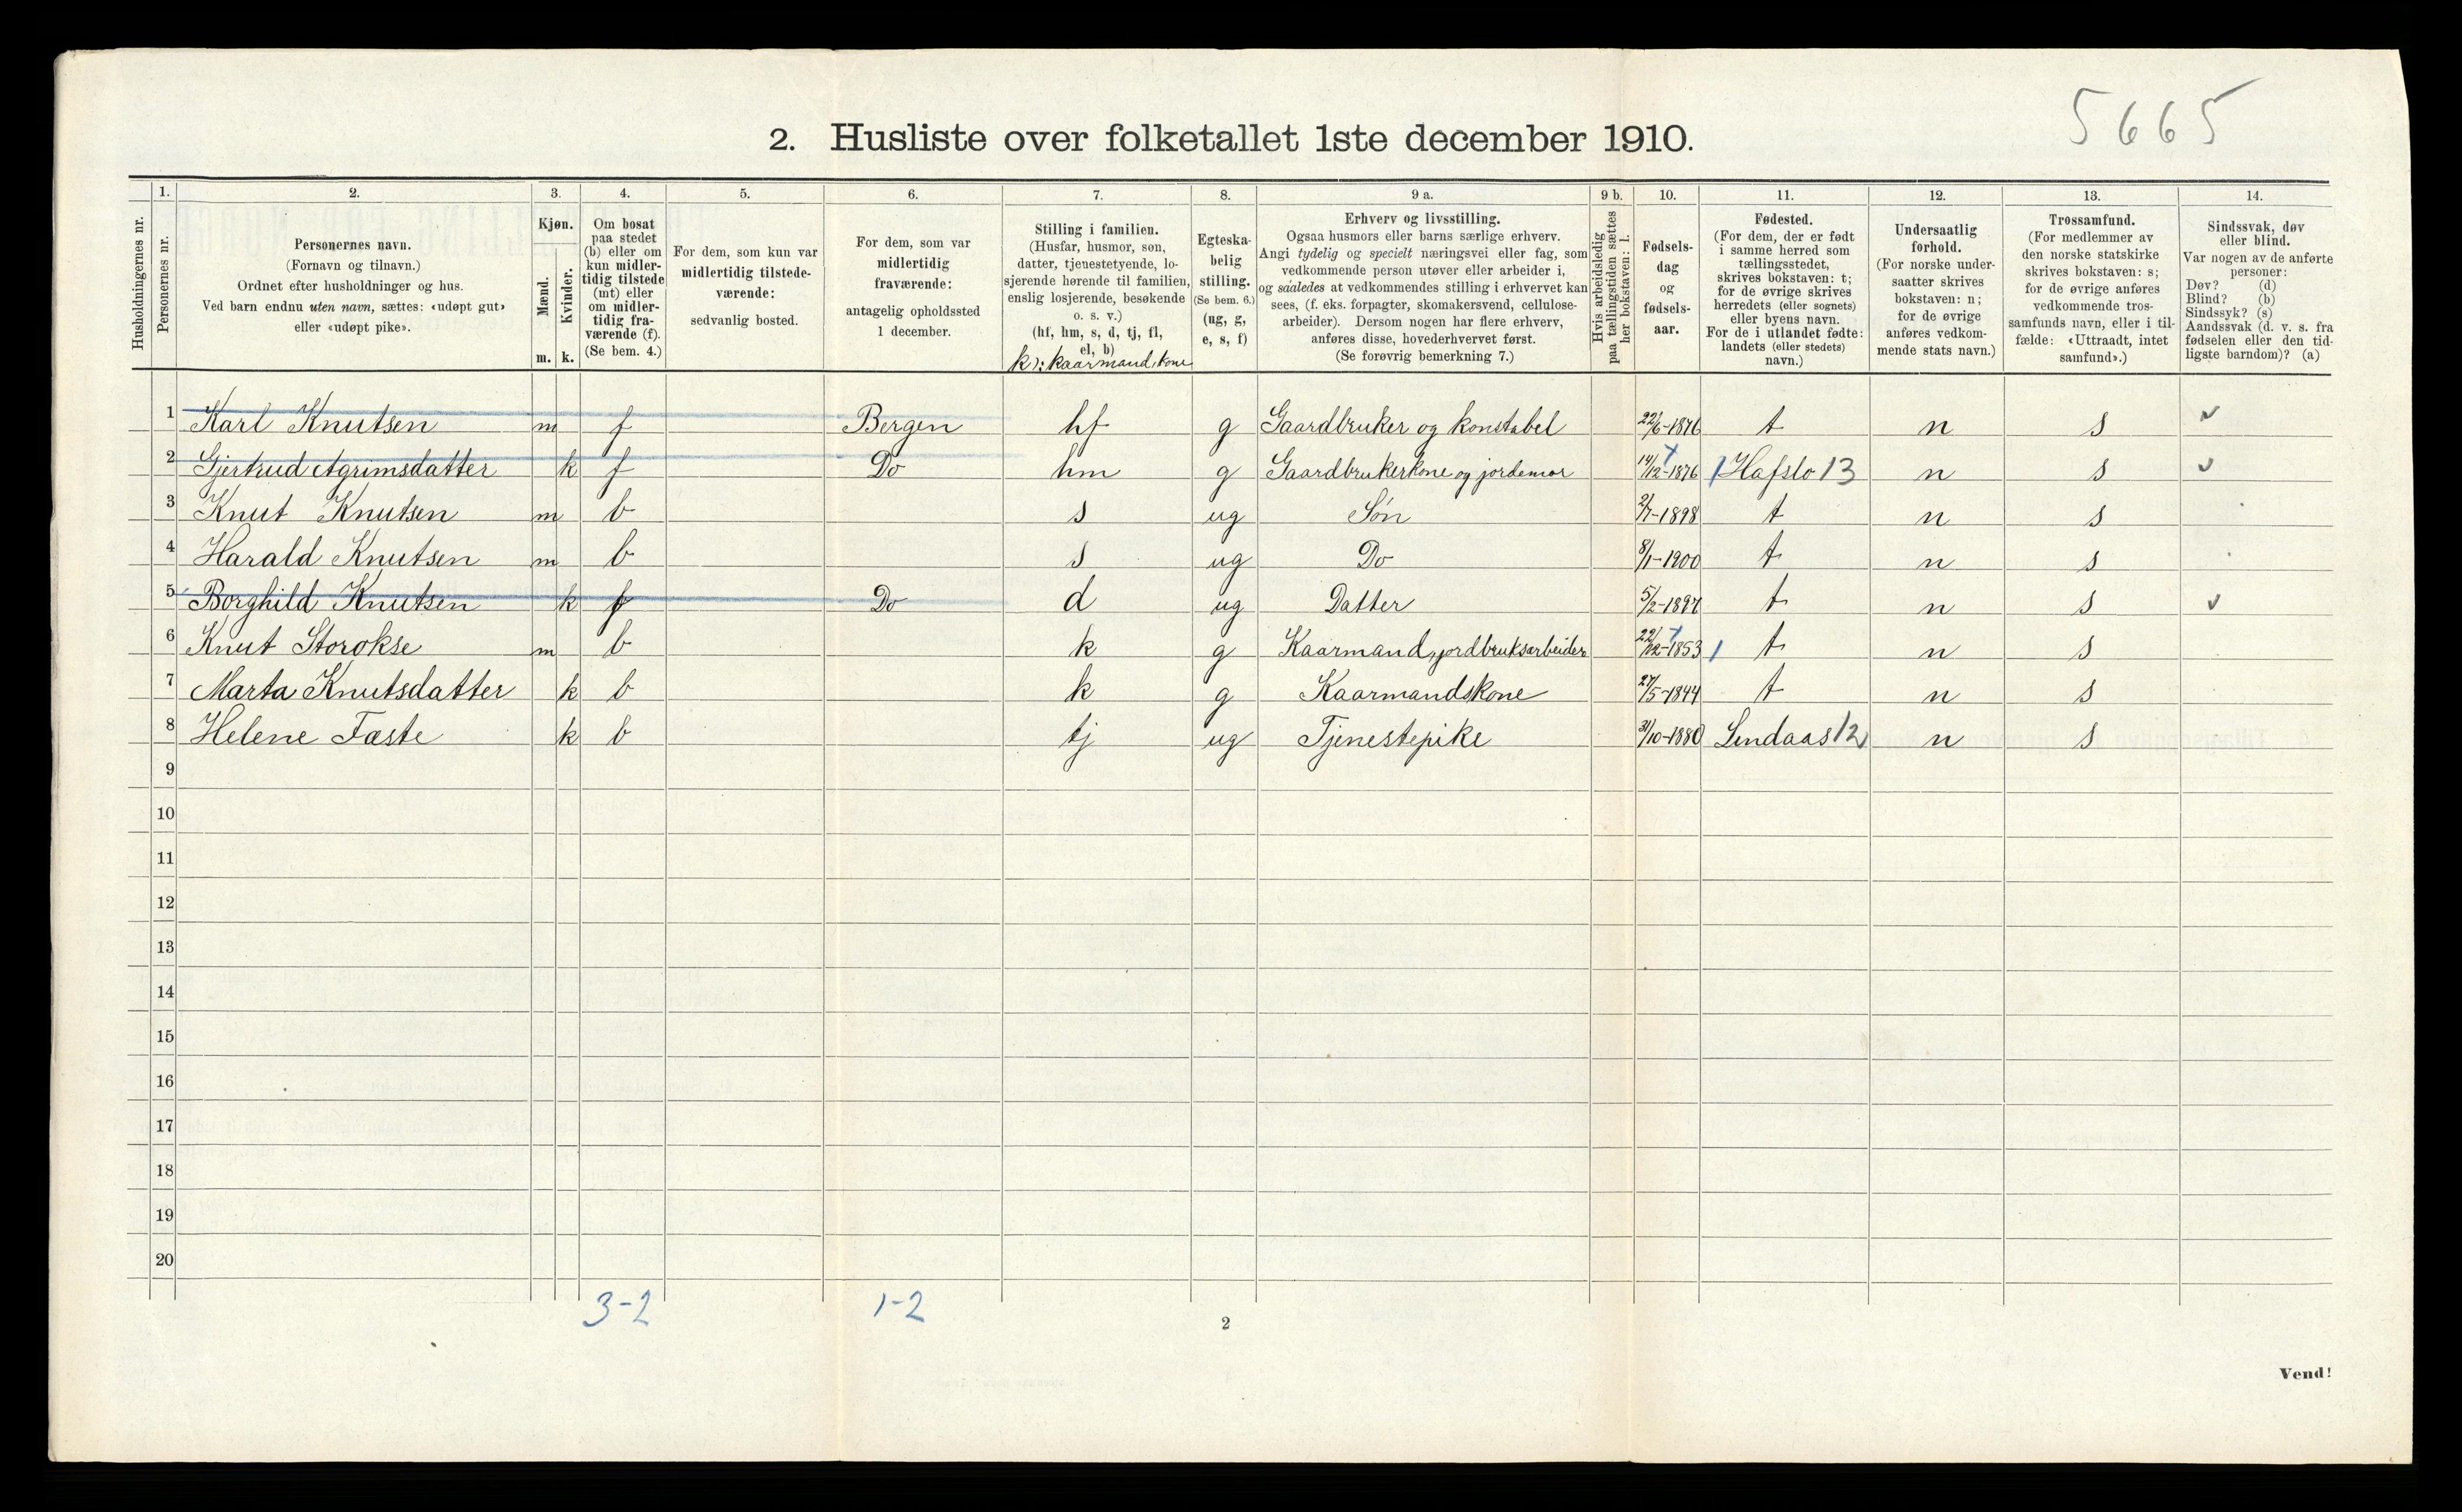 5665
2. Husliste over folketallet 1ste december 1910.
Husholdningernes nr.
1.
Personernes nr.
2.
Personernes navn.
(Fornavn og tilnavn.)
Ordnet efter husholdninger og hus.
Ved barn endnu uten navn, sættes: «udøpt gut»
eller «udøpt pike».
3.
Kjøn.
Mænd.
Kvinder.
m. k.
4.
Om bosat
paa stedet
(b) eller om
kun midler-
tidig tilstede
(mt) eller
om midler-
tidig fra-
værende (f).
(Se bem. 4.)
5.
For dem, som kun var
midlertidig tilstede-
værende:
sedvanlig bosted.
6.
For dem, som var
midlertidig
fraværende:
antagelig opholdssted
1 december.
7.
Stilling i familien.
(Husfar, husmor, søn,
datter, tjenestetyende, lo-
sjerende hørende til familien,
enslig losjerende, besøkende
o. s. v.)
(hf, hm, s, d, tj, fl,
el, b)
k): kaarmand, kone
8.
Egteska-
belig
stilling.
(Se bem. 6.)
(ug, g,
e, s, f)
9 a.
Erhverv og livsstilling.
Ogsaa husmors eller barns særlige erhverv.
Angi tydelig og specielt næringsvei eller fag, som
vedkommende person utøver eller arbeider i,
og saaledes at vedkommendes stilling i erhvervet kan
sees, (f. eks. forpagter, skomakersvend, cellulose-
arbeider). Dersom nogen har flere erhverv,
anføres disse, hovederhvervet først.
(Se forøvrig bemerkning 7.)
9 b.
Hvis arbeidsledig
paa tællingstiden sættes
her bokstaven: l.
10.
Fødsels-
dag
og
fødsels-
aar.
11.
Fødested.
(For dem, der er født
i samme herred som
tællingsstedet,
skrives bokstaven: t;
for de øvrige skrives
herredets (eller sognets)
eller byens navn.
For de i utlandet fødte:
landets (eller stedets)
navn.)
12.
Undersaatlig
forhold.
(For norske under-
saatter skrives
bokstaven: n;
for de øvrige
anføres vedkom-
mende stats navn.)
13.
Trossamfund.
(For medlemmer av
den norske statskirke
skrives bokstaven: s;
for de øvrige anføres
vedkommende tros-
samfunds navn, eller i til-
fælde: «Uttraadt, intet
samfund».)
14.
Sindssvak, døv
eller blind.
Var nogen av de anførte
personer:
Døv? (d)
Blind? (b)
Sindssyk? (s)
Aandssvak (d. v. s. fra
fødselen eller den tid-
ligste barndom)? (a)
1 Karl Knutsen m f Bergen hf g Gaardbruker og konstabel 22/6-1876 t n s
2 Gjertrud Agrimsdatter k f Do hm g Gaardbrukerkone og jordemor 14/12-1876 Hafslo 13 n s
3 Knut Knutsen m b s ug Søn 2/7-1898 t n s
4 Harald Knutsen m b s ug Do 8/1-1900 t n s
5 Borghild Knutsen k f Do d ug Datter 5/2-1897 t n s
6 Knut Storokse m b k g Kaarmand, jordbruksarbeider 22/12-1853 t n s
7 Marta Knutsdatter k b k g Kaarmandskone 27/5-1844 t n s
8 Helene Fæste k b tj ug Tjenestepike 31/10-1880 Lindaas 12 n s
9
10
11
12
13
14
15
16
17
18
19
20
3-2 1-2
2
Vend!